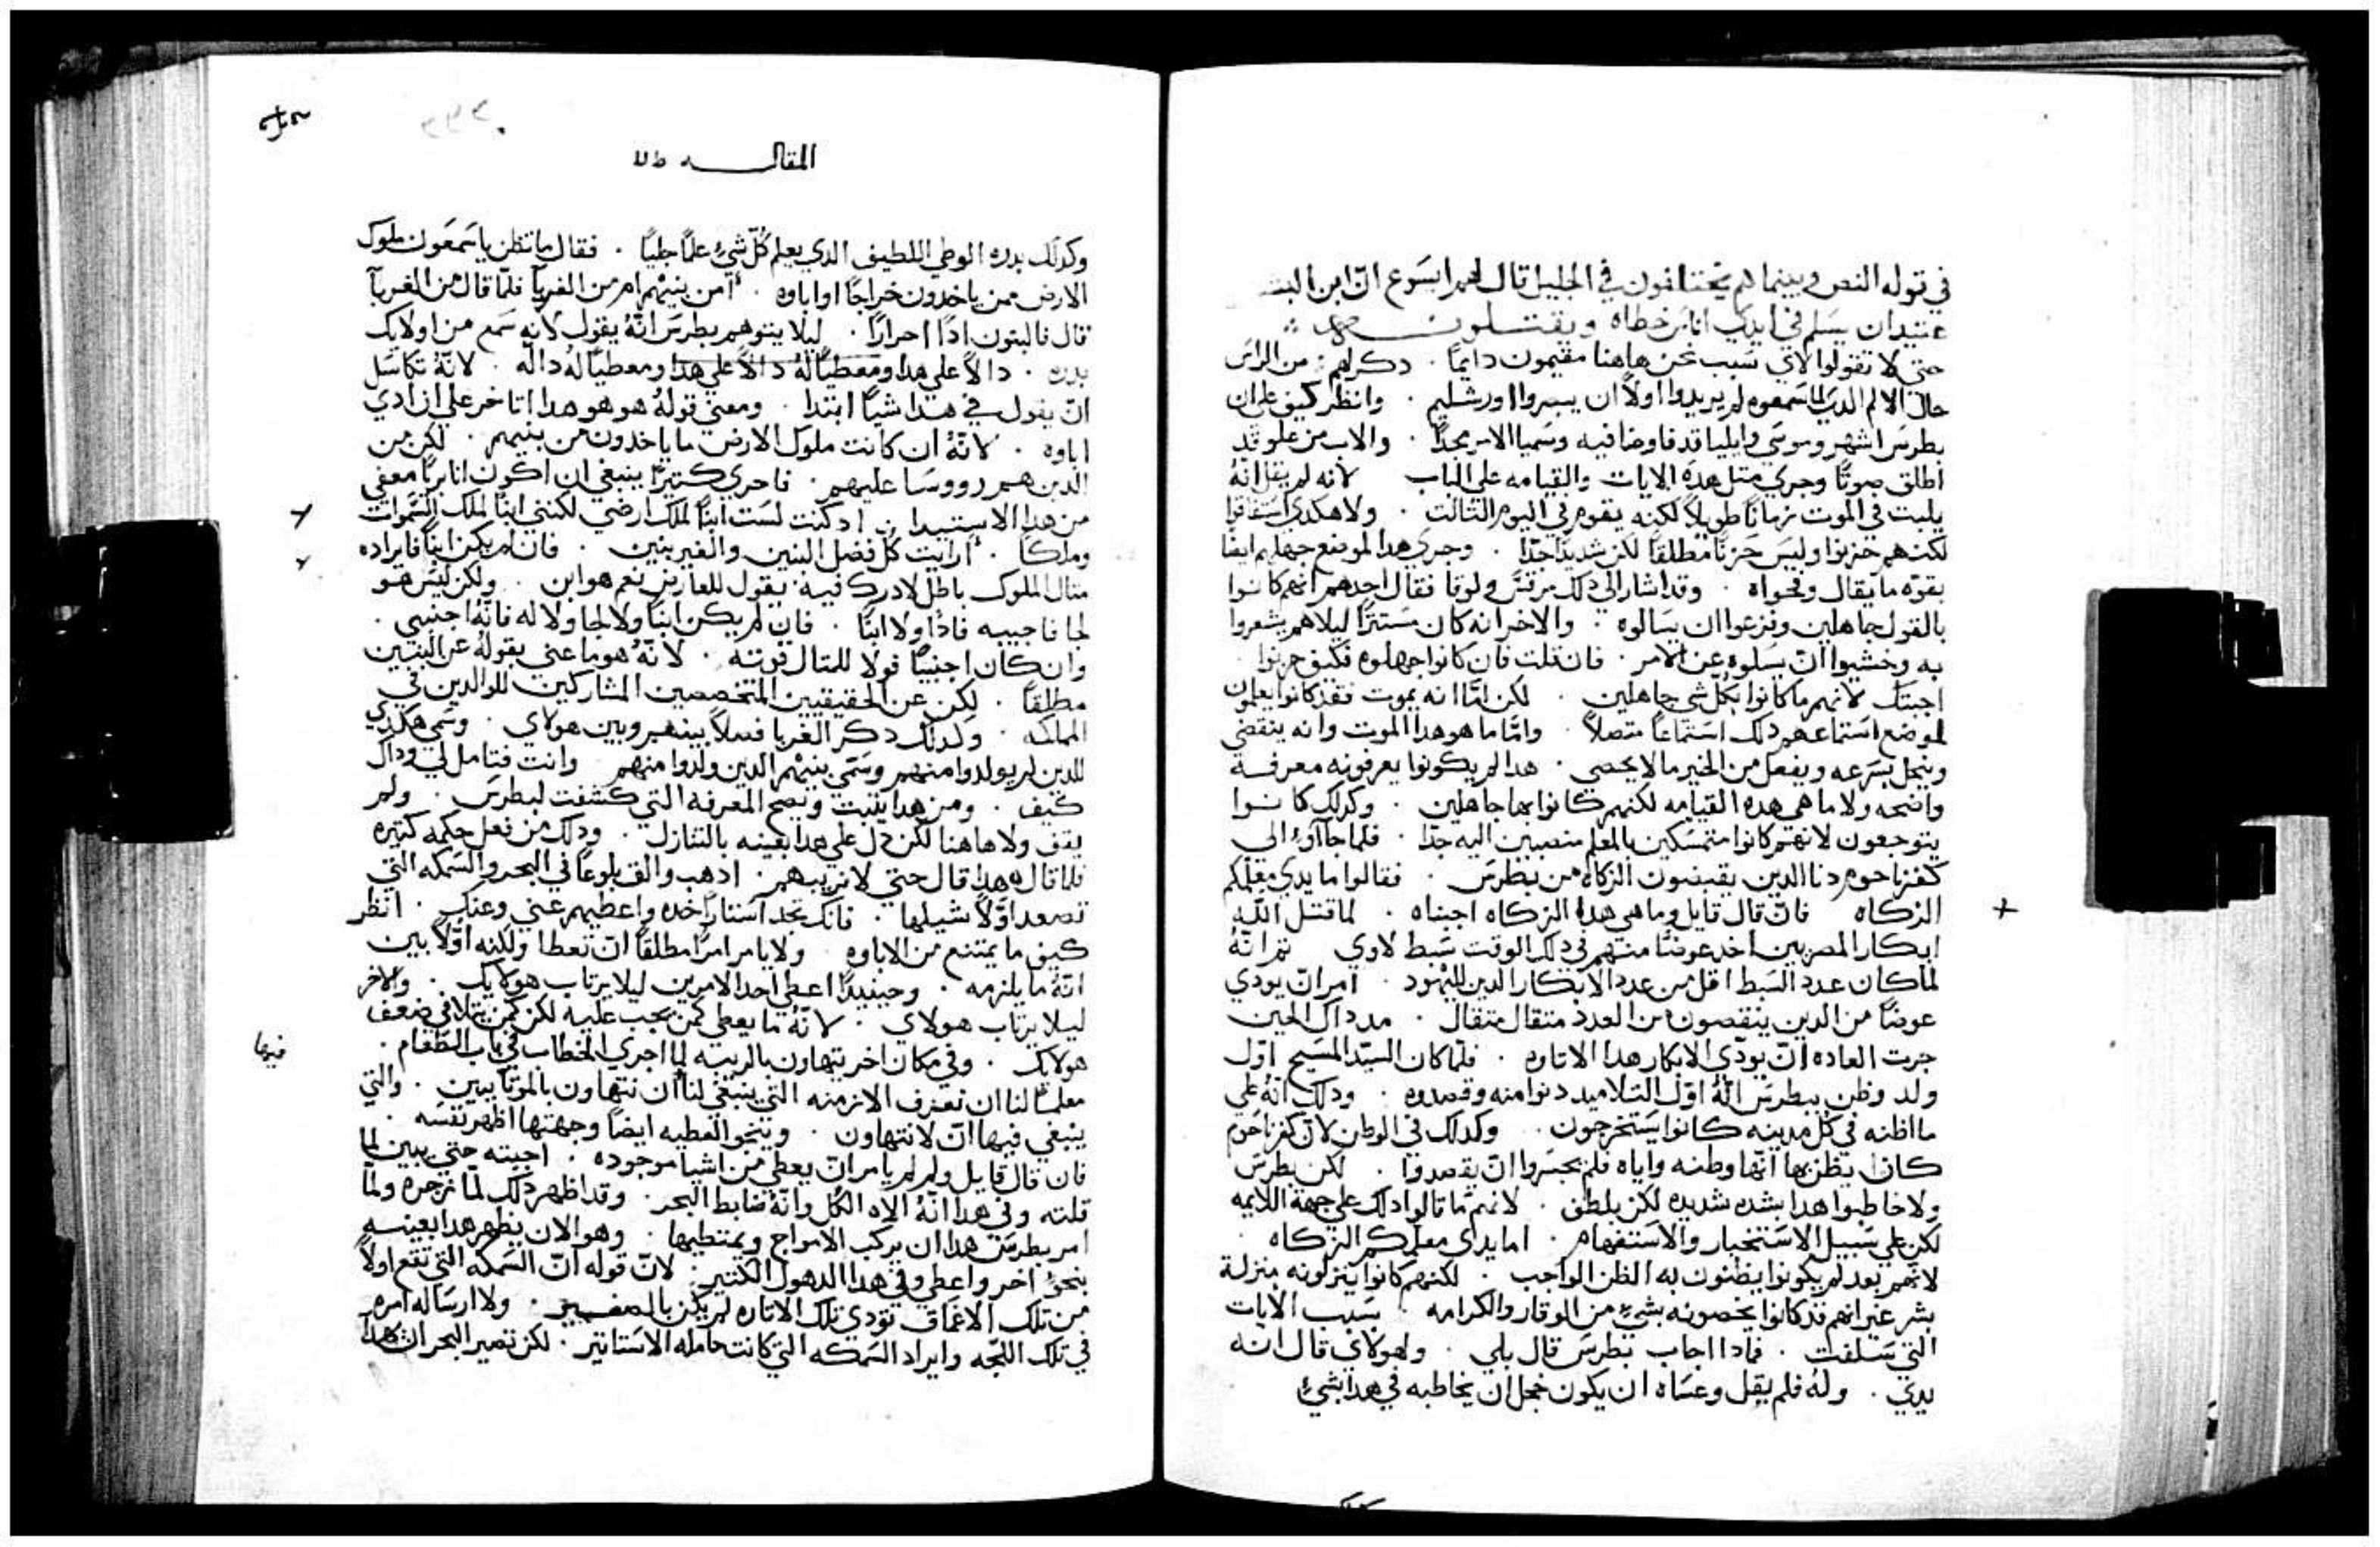 في قوله النص وبينما هم يختلفون في الجليل قال لهم ايسوع ان ابن البشر
عتيدان يسلم في ايدي اناس خطاه ويقتلون
حتي لا تقولوا لاي سبب نحن هاهنا مقيمون دايماً . دكر لهم من الراس
حال الالم الدي لما سمعوه لم يريدوا اولاً ان يسيروا اورشليم . وانظر كيف علي ان
بطرس اشهر وموسي وايليا قد فاوضا فيه وسميا الامر مجداً . والاب من علو قد
اطلق صوتاً وجري مثل هده الايات والقيامه علي الباب لانه لم يقل انهُ
يلبت في الموت زماناً طويلاً لكنه يقوم في اليوم التالت . ولا هكدي استفاقوا
لكنهم حزنوا وليس حزناً مطلقاً لكن شديداً جداً . وجري هدا لموضع جهلهم ايضاً
بقوة ما يقال وفحواه . وقد اشار الي دلك مرقس ولوقا فقال احدهم انهم كانوا
بالقول جاهلين وفزعوا ان يسالوه . والاخر انه كان مستتراً ليلا هم يشعروا
به وخشيوا ان يسلوه عن الامر . فان قلت فان كانوا جهلوه فكيف حزنوا .
اجبتك لانهم ما كانوا بكل شي جاهلين . لكن امّا انه يموت فقد كانوا يعلمون
لموضع استماعهم دلك استماعاً متصلاً . وامّا ما هو هدا الموت وانه ينقضي
وينحل بسرعه ويفعل من الخير ما لا يحصي . هدا لم يكونوا يعرفونه معرفة
واضحه ولا ما هي هده القيامه لكنهم كانوا بها جاهلين . وكدلك كانوا
يتوجعون لانهم كانوا متمسكين بالمعلم منصبين اليه جدا . فلما جاآوا الي
كفرناحوم دنا الدين يقبضون الزكاه من بطرس . فقالوا ما يدي معلمكم
الزكاه فان قال قايل وما هي هده الزكاه اجبناه . لما قتل الله
ابكار المصريين اخد عوضاً منهم في دلك الوقت سبط لاوي تم انهُ
لما كان عدد السبط اقل من عدد الابكار الدين لليهود . امر ان يودي
عوضاً من الدين ينقصون من العدد متقال متقال . مد داك الحين
جرت العاده ان يودّي الابكار هدا الاتاره . فلما كان السيد المسيح اول
ولد وظن ببطرس انهُ اول التلاميد دنوا منه وقصدوه . ودلك انهُ علي
ما اظنه في كل مدينه كانوا يستخرجون . وكدلك في الوطن لان كفرناحوم
كان يظن بها انها وطنه واياه فلم يجسروا ان يقصدوا . لكن بطرس
ولا خاطبوا هدا بشده شديده لكن بلطف . لانهم ما قالوا دلك علي جهة اللايمه
لكن علي سبيل الاستخبار والاستفهام . اما يدي معلمكم الزكاه
لانهم بعد لم يكونوا يظنون به الظن الواجب . لكنهم كانوا ينزلونه منزلة
بشر غير انهم قد كانوا يخصونه بشيٍ من الوقار والكرامه . بسبب الايات
التي سلفت . فمادا اجاب بطرس قال بلي . ولهولاي قال انه
يدي . ولهُ فلم يقل وعساه ان يكون خجل ان يخاطبه في هدا بشيٍ
المقاله
وكدلك بدره الوطي اللطيف الدي يعلم كُلّ شيٍ علماً جلياً . فقال ما تظن يا سمعون ملوك
الارض ممن ياخدون خراجاً او اباوه . امن بنيهم ام من الغربآ فلما قال من الغربآ
قال فالبنون اداً احراراً . ليلا يتوهم بطرس انهُ يقول لانه سمع من اولايك
بدره . دالاً علي هدا ومعطياً لهُ دالاً علي هدا ومعطياً لهُ داله . لانهُ تكاسل
ان يقول في هدا شياً ابتدا . ومعني قولهُ هو هو هدا اتاخر علي ان ادي
اباوه . لانهُ ان كانت ملوك الارض ما ياخدون من بنيهم . لكن من
الدين هم رووسا عليهم . فاحري كتيراً ينبغي ان اكون انا برياً معفي
من هدا الاستيدا . ادكنت لست ابناً لملك ارضي لكنني ابناً لملك السموات
وملكاً . ارايت كل فضل البنين والغير بنين . فان لم يكن ابناً فايراده
متال الملوك باطل لا درك فيه . يقول للعارض نعم هو ابن . ولكن ليس هو
لجا فاجيبه فادًا ولا ابنًا . فان لم يكن ابناً ولا لجا ولا له فانه اجنبي .
وان كان اجنبياً فولا للمتال قوته . لانهُ هو ما عني بقولهُ عن البنين
مطلقاً . لكن عن الحقيقيين المتخصصين المشاركين للوالدين في
المملكه . وكدلك دكر الغربا فصلاً بينهم وبين هولاي . وسمي هكدي
للدين لم يولدوا منهم وسمي بنيهم الدين ولدوا منهم وانت فتامل لي وداك
كيف . ومن هدا يتبت ويصح المعرفه التي كشفت لبطرس . ولم
يقف ولا هاهنا لكن دل علي هدا بعينه بالتنازل . ودلك من فعل حكمه كتيره
فلما قال هدا قال حتي لا نريبهم . ادهب والق بلوعاً في البحر والسمكه التي
تصعد اوّلاً شيلها . فانك تجد استاراً خده واعطيهم عني وعنك . انظر
كيف ما يمتنع من الاباوه . ولا يامر امراً مطلقاً ان تعطا ولكنه اوّلاً بين
انهُ ما يلزمه . وحينيداً اعطي احد الامرين ليلا يرتاب هولايك . والاخر
ليلا يرتاب هولاي . لانهُ ما يعطي كمن يجب عليه لكن كمن يتلافي ضعف
هولايك . وفي مكان اخر يتهاون بالريبه لما اجري الخطاب في باب الطعام .
معلماً لنا ان نعرف الازمنه التي ينبغي لنا ان نتهاون بالمرتابين . والتي
فيها
ينبغي فيها ان لا نتهاون . وبنحو العطيه ايضاً وجهتها اظهر نفسه .
فان قال قايل ولم لم يامر ان يعطي من اشيا موجوده . اجبته حتي يبين لما
قلته وفي هدا انهُ الاه الكل وانهُ ضابط البحر . وقد اظهر دلك لما زجره ولما
امر بطرس هدا ان يركب الامواج ويمتطيها . وهو الان يظهر هدا بعينه
بنحوٍ اخر واعطي وفي هدا الدهول الكتير . لان قوله ان السمكه التي تقع اولاً
من تلك الاعماق تؤدي تلك الاتاره لم يكن بالصغير . ولا ارساله امره
في تلك اللجه وايراد السمكه التي كانت حامله الاستاتير . لكن تصير البحر ان هكدا